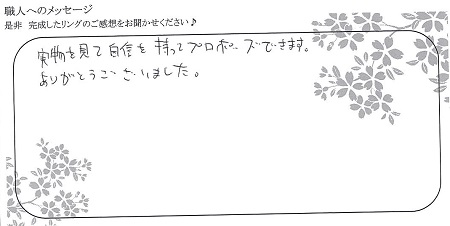 職人へのメッセージ
是非 完成したリングのご感想をお聞かせください♪
実物を見て自信を持ってプロポーズできます。
ありがとうございました。